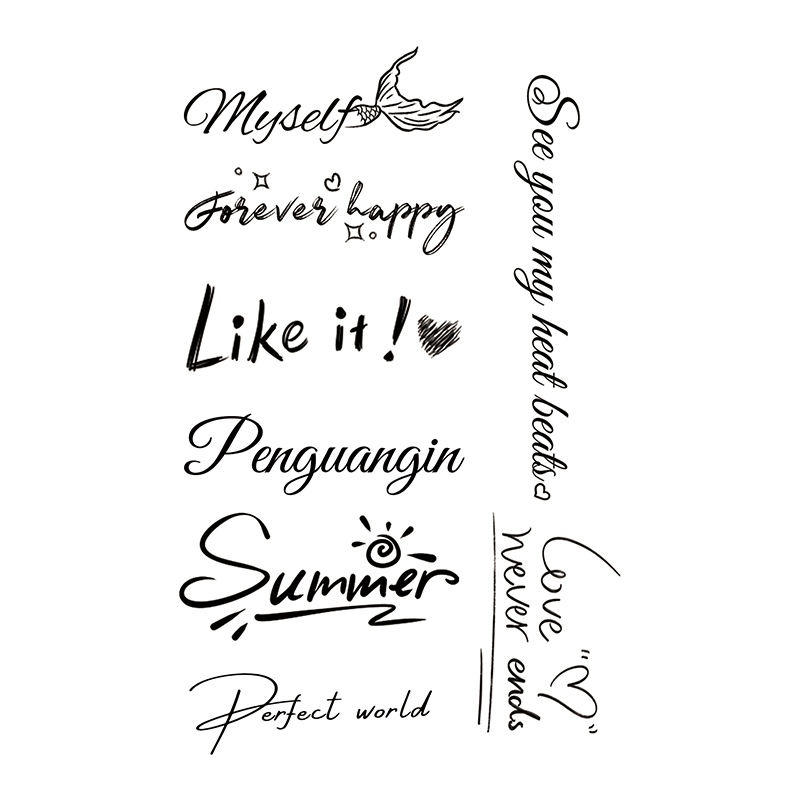 Myself
Forever happy
Like it!
Penguangin
Summer
Perfect world
See you my heat beats
Love
never ends